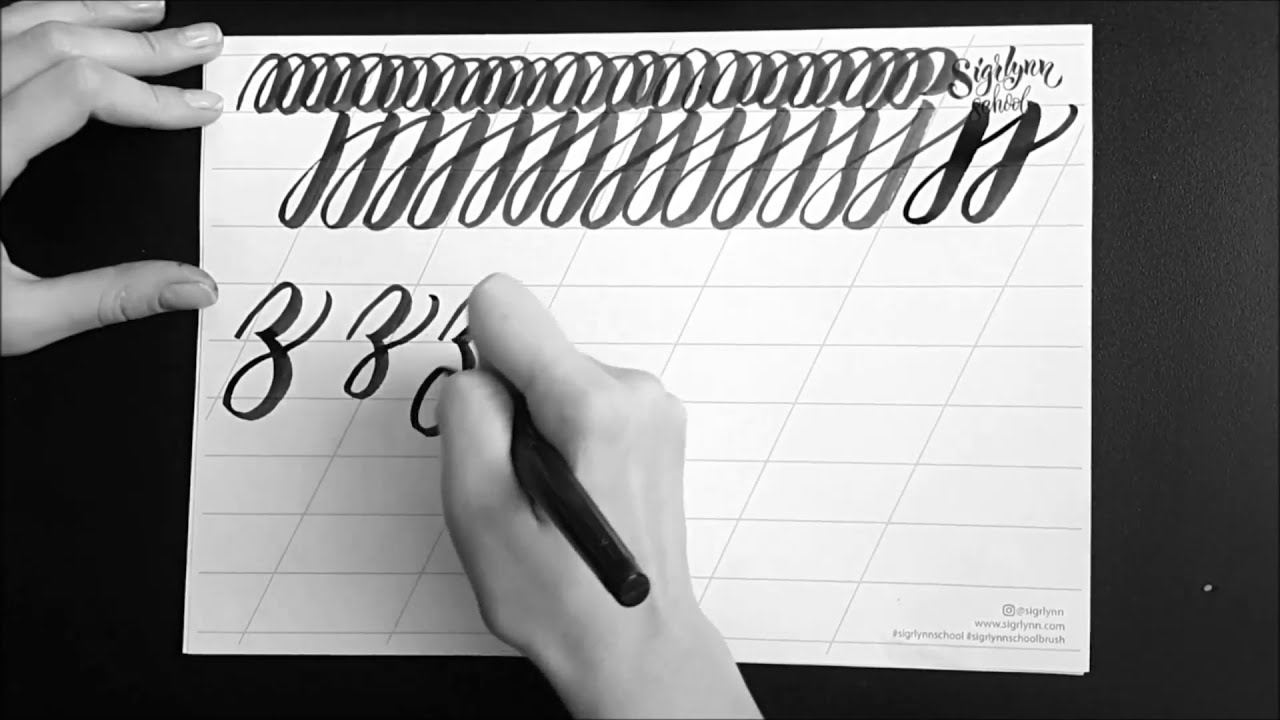 Sigrlynn
school
з з з
@sigrlynn
www.sigrlynn.com
#sigrlynnschool #sigrlynnschoolbrush